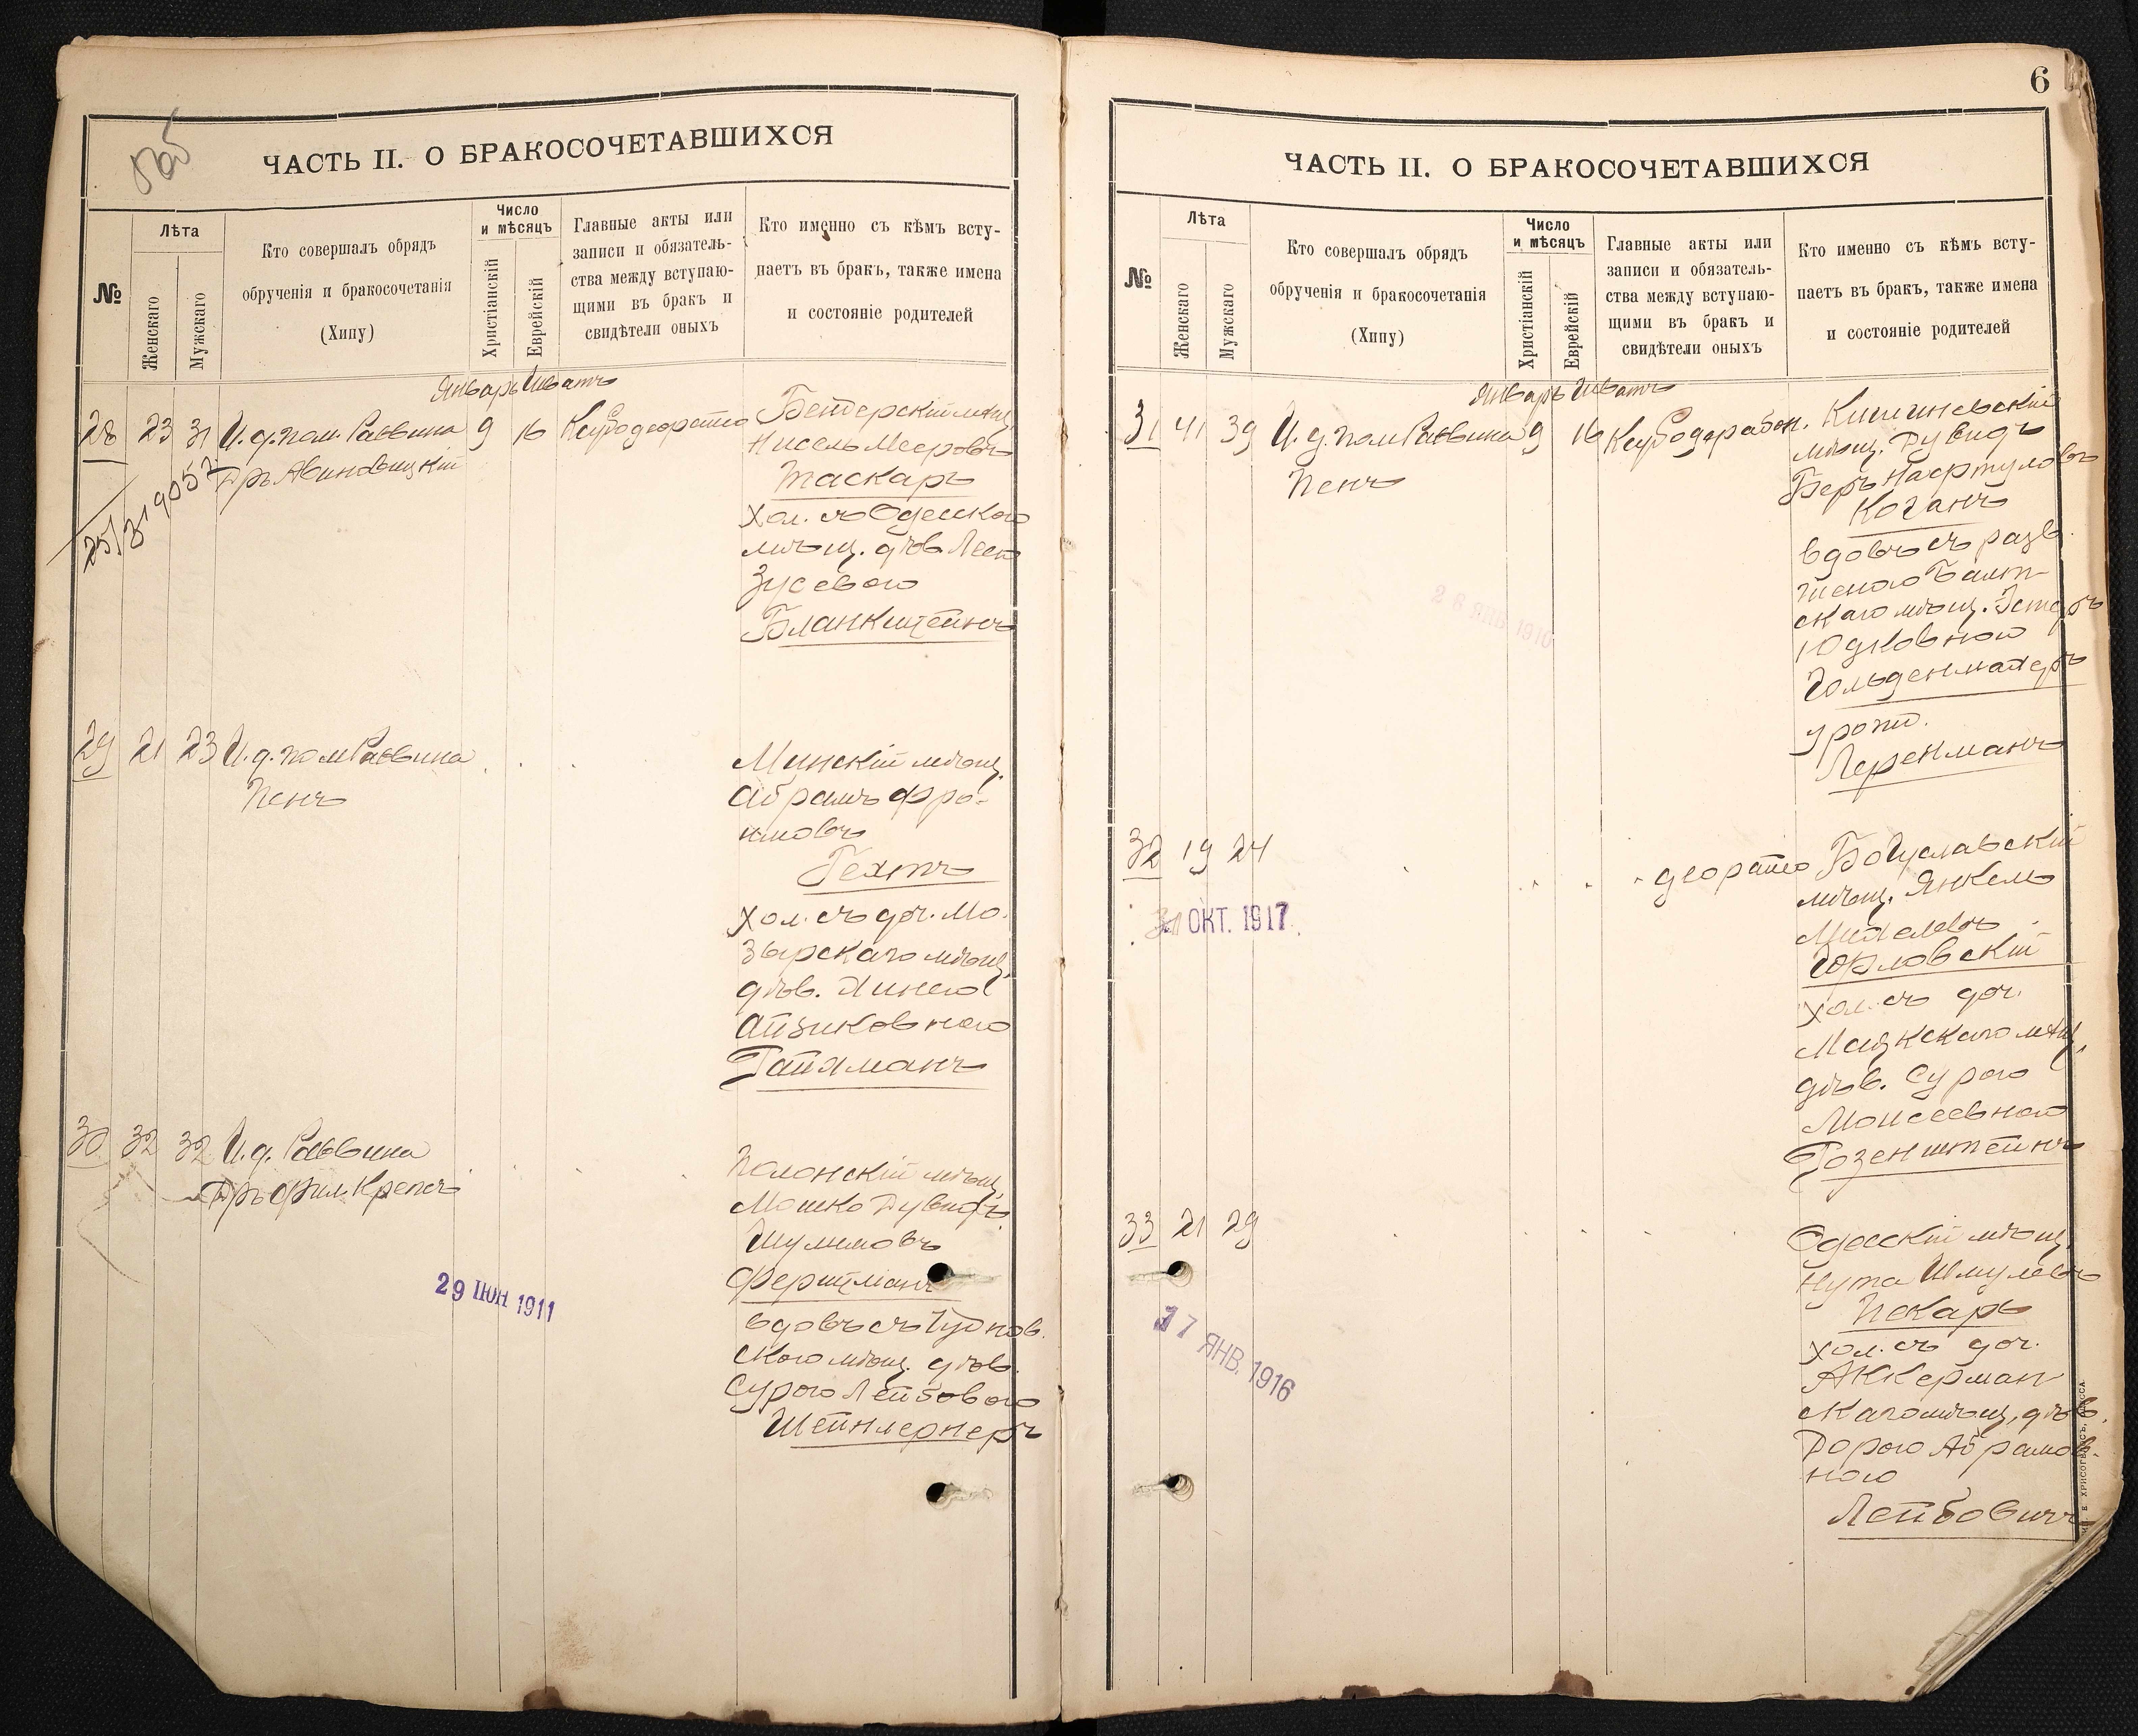 ЧАСТЬ II. О БРАКОСОЧЕТАВШИХСЯ
№
Лѣта
Женскаго
Мужскаго
Кто совершалъ обрядъ
обрученія и бракосочетанія
(Хипу)
Число
и мѣсяцъ
Христіанскій
Еврейскій
Главные акты или
записи и обязатель-
ства между вступаю-
щими въ бракъ и
свидѣтели оныхъ
Кто именно съ кѣмъ всту-
паетъ въ бракъ, также имена
и состояніе родителей
Январь Шватъ
28 23 31 И.д. пом. Раввина 9 16
Дръ Авиновицкій
Бендерскій мѣщ.
Нисель Мееровъ
Таскаръ
хол. съ Одесскою
мѣщ. дѣв. Леею
Зусевою
Бланкштейнъ
29 21 23 И.д. пом Раввина
Пенъ
Минскій мѣщ.
Абрамъ Фро-
имовъ
Гехтъ
хол. съ доч. Мо-
зырскаго мѣщ.
дѣв. Хинею
Айзиковною
Райхманъ
30 32 32 И.д. Раввина
Дръ Фил Крепсъ
Полонскій мѣщ.
Мошко Дувидъ
Шулимовъ
Ферштманъ
вдовъ съ Чуднов.
скою мѣщ. дѣв.
Сурою Лейбовою
Шейнлернеръ
29 ІЮН 1911
6
ЧАСТЬ II. О БРАКОСОЧЕТАВШИХСЯ
№
Лѣта
Женскаго
Мужскаго
Кто совершалъ обрядъ
обрученія и бракосочетанія
(Хипу)
Число
и мѣсяцъ
Христіанскій
Еврейскій
Главные акты или
записи и обязатель-
ства между вступаю-
щими въ бракъ и
свидѣтели оныхъ
Кто именно съ кѣмъ всту-
паетъ въ бракъ, также имена
и состояніе родителей
Январь Шватъ
31 41 39 И.д. пом Раввина 9 16
Пенъ
Кишиневскій
мѣщ. Дувидъ
Беръ Нафтуловъ
Коганъ
вдовъ съ разв.
женою Балт-
скаго мѣщ. Эстеръ
Юдковною
Гольденмахеръ
урожд.
Леренманъ
26 ЯНВ 1910
32 19 24
Богуславскій
мѣщ. Янкель
Михелевъ
Горловскій
хол. съ доч.
Маякскаго мѣщ.
дѣв. Сурою
Моисеевною
Розенштейнъ
31 ОКТ. 1917
33 21 29
Одесскій мѣщ.
Нута Шмулевъ
Пекаръ
хол. съ доч.
Аккерман-
скаго мѣщ. дѣв.
Дорою Абрамов-
ною
Лейбовичъ
17 ЯНВ. 1916